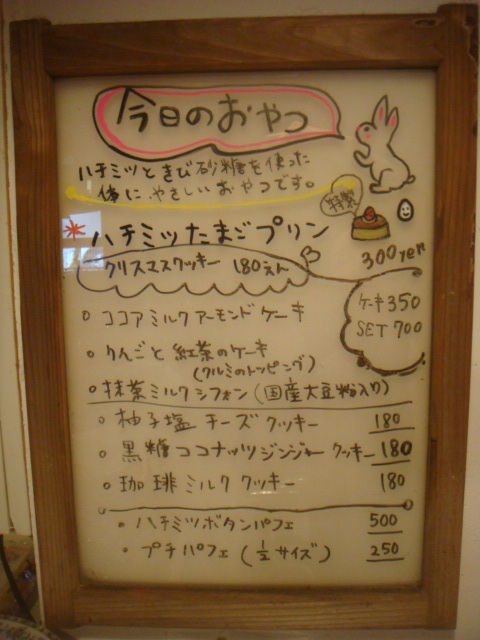 今日のおやつ
ハチミツときび砂糖を使った
体にやさしいおやつです。
特製
ハチミツたまごプリン
300yen
クリスマスクッキー 180えん
ケーキ350
SET 700
ココアミルクアーモンドケーキ
りんごと紅茶のケーキ
(クルミのトッピング)
抹茶ミルクシフォン(国産大豆粉入り)
柚子塩チーズクッキー 180
黒糖ココナッツジンジャークッキー 180
珈琲ミルククッキー 180
ハチミツボタンパフェ 500
プチパフェ(1/2サイズ) 250